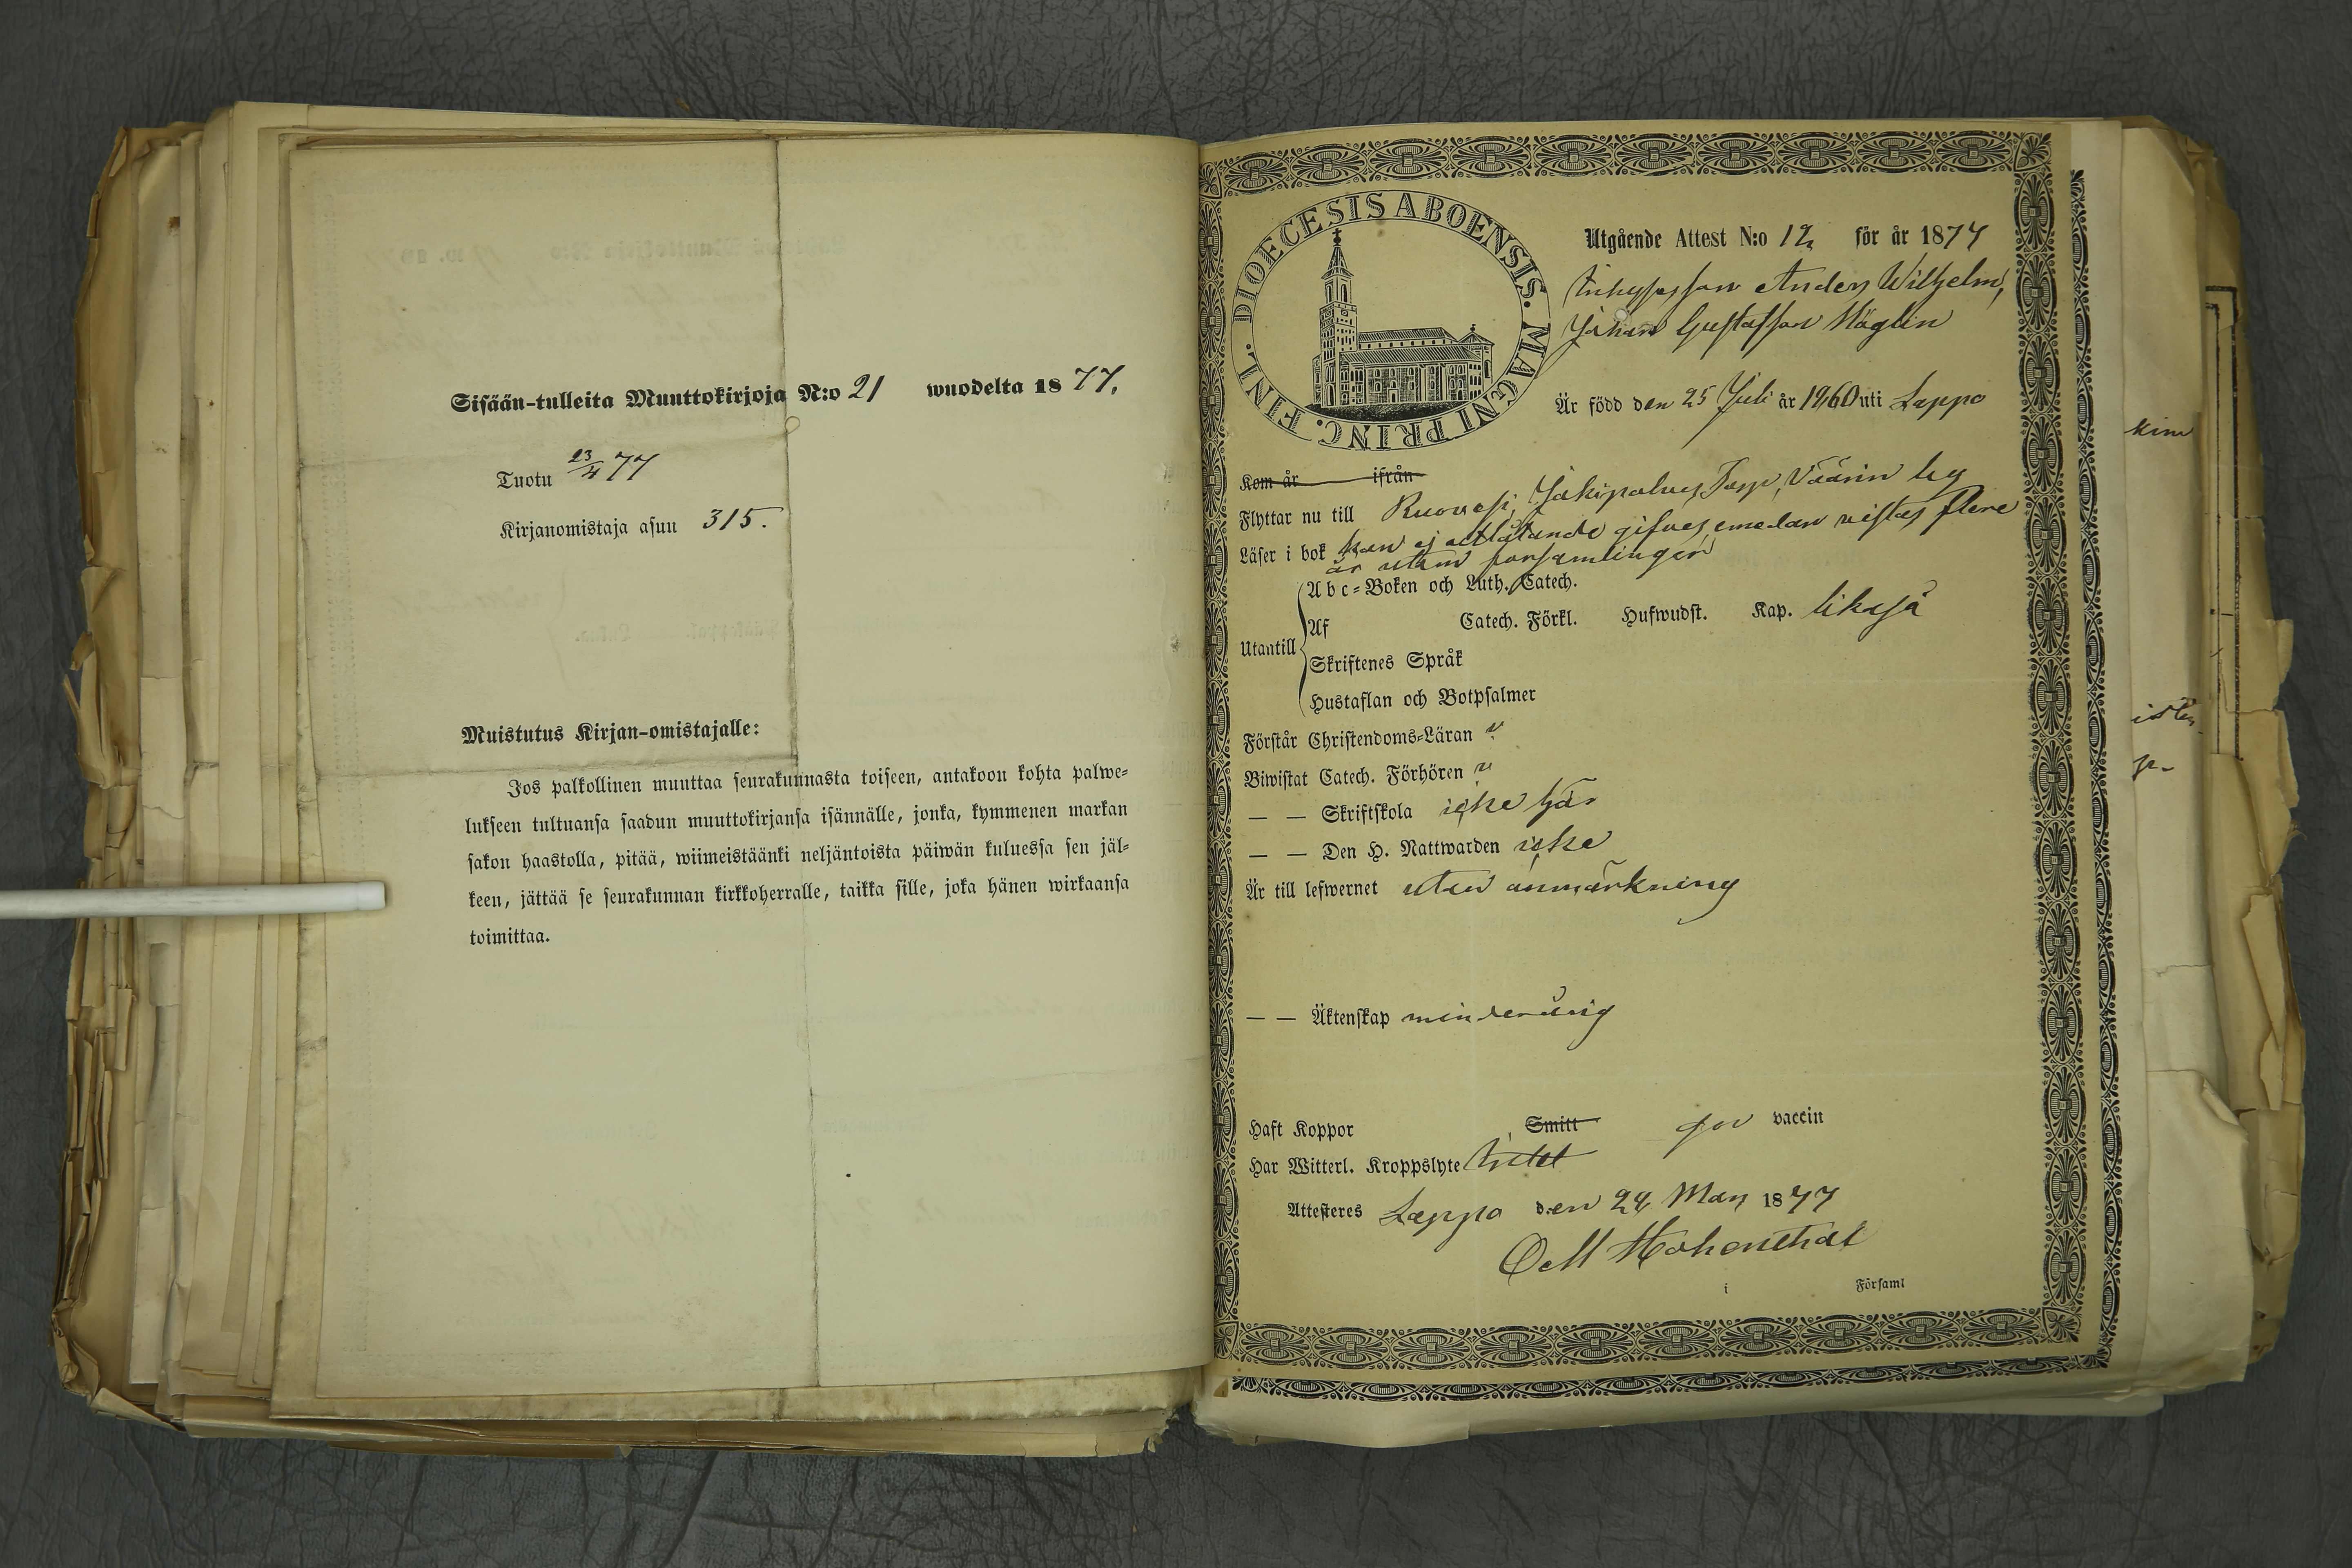 Sisään-tulleita Muuttokirjoja N:o 21 wuodelta 1877.
Tuotu 23/4 77
Kirjanomistaja asuu 315.
Muistutus Kirjan-omistajalle:
Jos palkollinen muuttaa seurakunnasta toiseen, antakoon kohta palwe-
lukseen tultuansa saadun muuttokirjansa isännälle, jonka, kymmenen markan
sakon haastolla, pitää, wiimeistäänki neljäntoista päiwän kuluessa sen jäl-
keen, jättää se seurakunnan kirkkoherralle, taikka sille, joka hänen wirkaansa
toimittaa.
DIOECESIS ABOENSIS. MAGNI PRINC. FINL.
Utgående Attest N:o 12 för år 1877
Anders Wilhelm,
Johan Gustafsson Höglin
Är född den 25 Juli år 1860 uti Lappo
Kom år ifrån
Flyttar nu till Ruovesi,
Läser i bok kan ej utlåtande gifvas, emedan vistas flere
år utom församlingen
Utantill
Abc-Boken och Luth. Catech.
Af Catech. Förkl. Hufwudst. Kap. likaså
Skriftenes Språk
Hustaflan och Botpsalmer
Förstår Christendoms-Läran "
Biwistat Catech. Förhören "
— — Skriftskola icke här
— — Den H. Nattwarden icke
Är till lefwernet utan anmärkning
— — Äktenskap minderårig
Haft Koppor Smitt vaccin
Har Witterl. Kroppslyte
Attesteres Lappo den 24 Mars 1877
Hohenthal
i Församl
kim